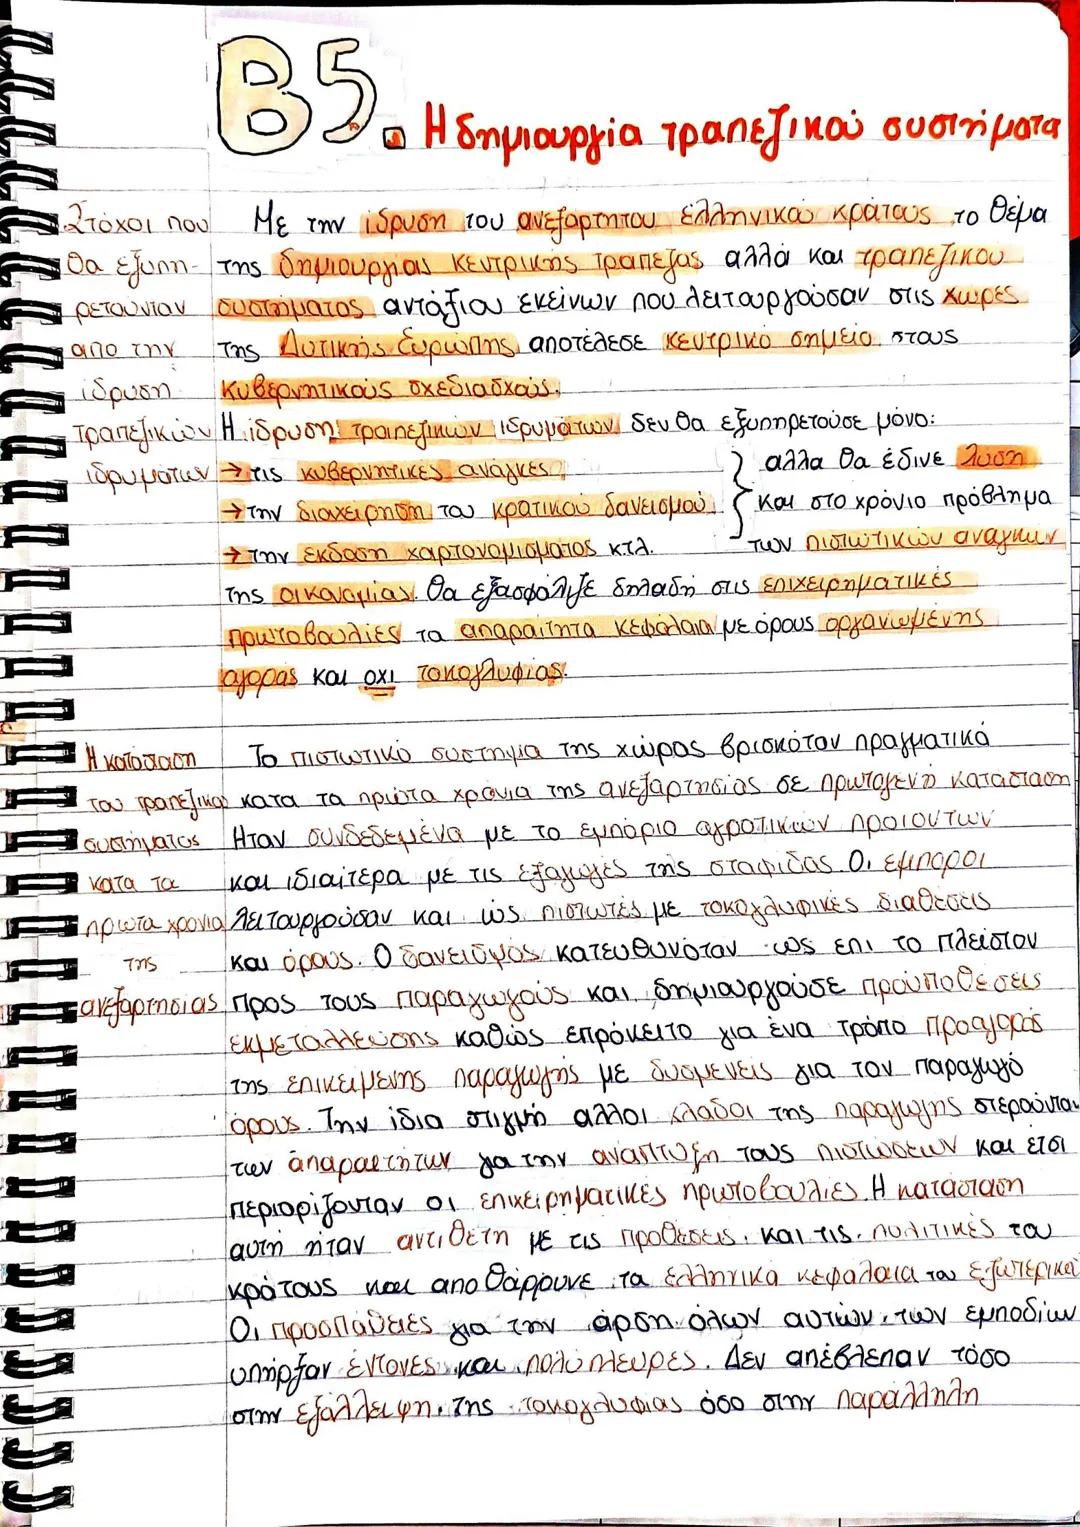 B5. Η δημιουργία τραπεζικού συστήματα
Στόχοι που
θα εξυπη-
ρετούνταν
απο την
ίδρυση
τραπεζικών
ιδρυμάτων
Με την ίδρυση του ανεξάρτητου ελληνικού κράτους το θέμα
της δημιουργίας κεντρικής τράπεζας αλλά και τραπεζικού
συστήματος αντάξιου εκείνων που λειτουργούσαν στις χώρες
της Δυτικής Ευρώπης, αποτέλεσε κεντρικό σημείο στους
κυβερνητικούς σχεδιασμούς.
Η ίδρυση τραπεζικών ιδρυμάτων δεν θα εξυπηρετούσε μόνο:
→ τις κυβερνητικές ανάγκες
→ την διαχείρηση του κρατικού δανεισμού
→ την έκδοση χαρτονομίσματος κτλ.
αλλα θα έδινε λύση
και στο χρόνιο πρόβλημα
των πιστωτικών αναγκών
της οικονομίας. Θα εξασφάλιζε δηλαδή στις επιχειρηματικές
πρωτοβουλίες τα απαραίτητα κεφάλαια με όρους οργανωμένης
αγοράς και οχι τοκογλυφίας.
Η κατάσταση
του τραπεζικού
συστήματος
κατα τα
πρωτα χρονια
της
ανεξαρτησίας
Το πιστωτικό συστημα της χώρας βρισκόταν πραγματικά
κατα τα πρώτα χρόνια της ανεξαρτησίας σε πρωτογενή κατάσταση
Ηταν συνδεδεμένα με το εμπόριο αγροτικών προιόντων
και ιδιαίτερα με τις εξαγωγές της σταφίδας. Οι έμποροι
λειτουργούσαν και ως πιστωτές με τοκογλυφικές διαθέσεις
και όρους. Ο δανεισμός κατευθυνόταν ως επι το πλείστον
προς τους παραγωγούς και δημιουργούσε προϋποθέσεις
εκμετάλλευσης καθώς επρόκειτο για ένα τρόπο προαγοράς
της επικείμενης παραγωγής με δυσμενείς για τον παραγωγό
όρους. Την ίδια στιγμή αλλοι κλάδοι της παραγωγής στερούνταν
των απαραιτήτων για την ανάπτυξη τους πιστώσεων και έτσι
περιορίζονταν οι επιχειρηματικές πρωτοβουλίες. Η κατάσταση
αυτή ήταν αντιθέτη με τις προθέσεις και τις πολιτικές του
κράτους και αποθάρρυνε τα ελληνικά κεφάλαια του εξωτερικού
Οι προσπάθειες για την άρση όλων αυτών των εμποδίων
υπήρξαν έντονες και πολύπλευρες. Δεν απέβλεπαν τόσο
στην εξάλλειψη της τοκογλυφίας όσο στην παράλληλη